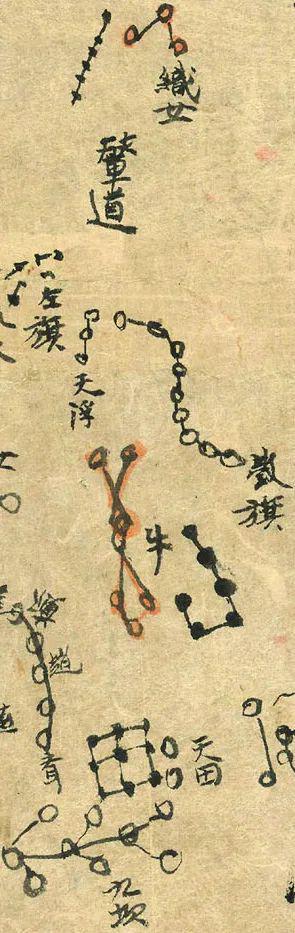 織女
輦道
左旗
天浮
旗
牛
趙
天田
齊
九坎